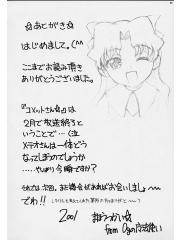 ☆あとがき☆
はじめまして。(^^
ここまでお読み頂き
ありがとうございました。
『コメットさん☆』は
2月で放送終了と
いうことで…(泣
メテオさんは一体どう
なってしまうのでしょうか
……やっぱり今晩ですか?
それでは次回、また機会があればお会いしましょう
でわ!!
2001
from